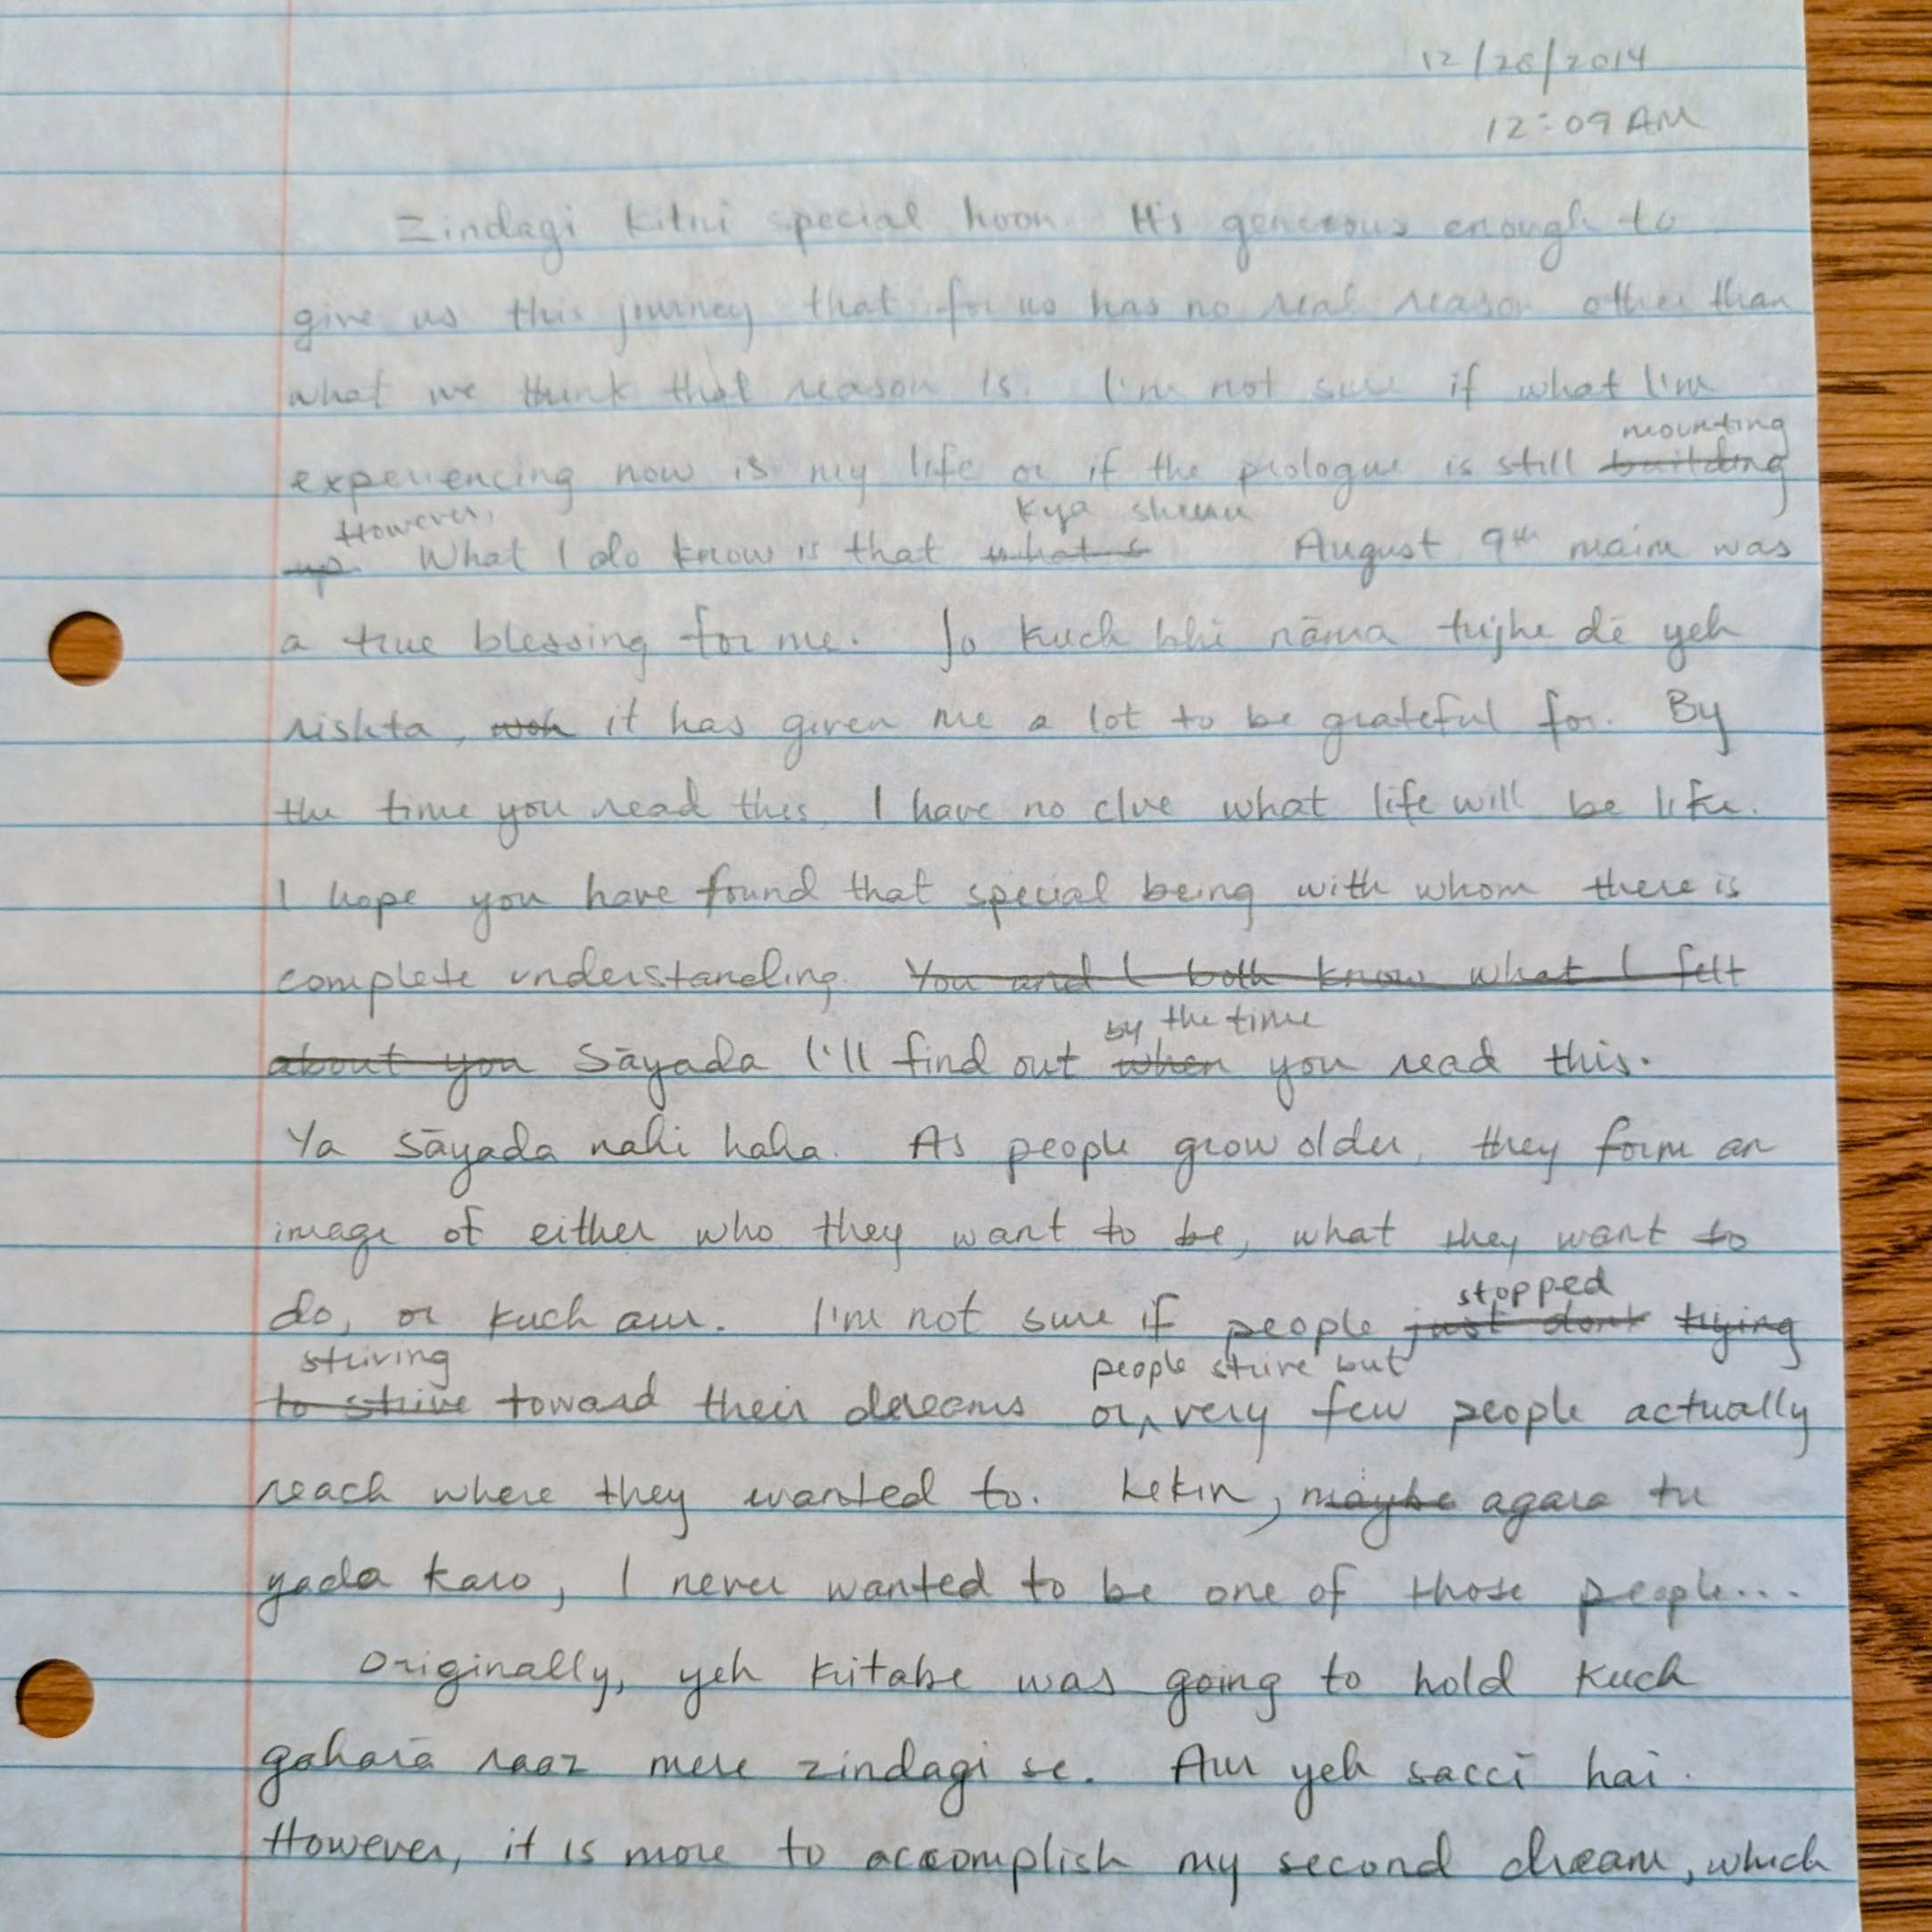 12/28/2014
12:09 AM
Zindagi kitni special hoon. It's generous enough to
give us this journey that for us has no real reason other than
what we think that reason is. I'm not sure if what I'm
mounting
experiencing now is my life or if the prologue is still building
However, kya shuru
up. What I do know is that what s August 9th maim was
a true blessing for me. Jo kuch bhi nāma tujhe dē yeh
rishta, woh it has given me a lot to be grateful for. By
the time you read this, I have no clue what life will be like.
I hope you have found that special being with whom there is
complete understanding. You and I both know what I felt
by the time
about you Sāyada I'll find out when you read this.
Ya sāyada nahi haha. As people grow older, they form an
image of either who they want to be, what they want to
stopped
do, or kuch aur. I'm not sure if people just dont trying
striving people strive but
to strive toward their dreams or ^ very few people actually
reach where they wanted to. Lekin, maybe agara tu
yada karo, I never wanted to be one of those people...
Originally, yeh kitabe was going to hold kuch
gaharā raaz mere zindagi se. Aur yeh saccī hai.
However, it is more to accomplish my second dream, which